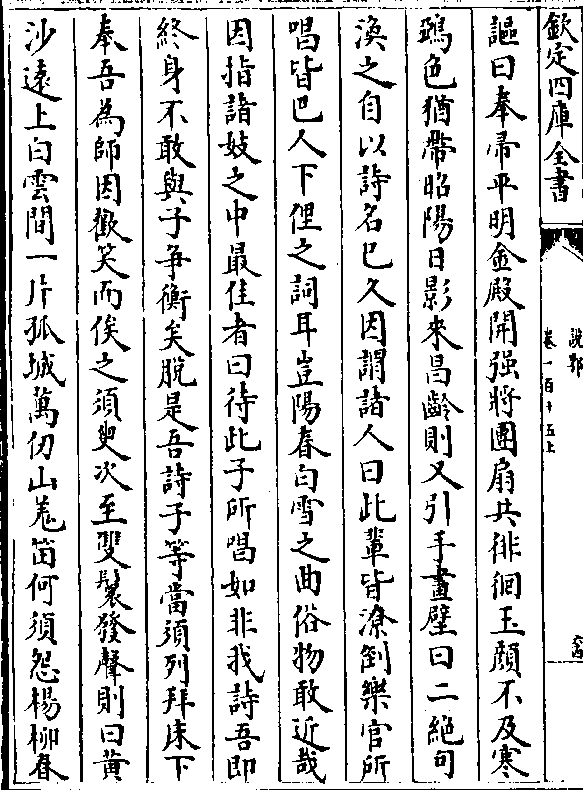 欽定四庫全書
說郛
卷一百十五上
謳曰奉帚平明金殿開强將團扇共徘徊玉顔不及寒
鵶色猶帶昭陽日影來昌齡則又引手畫壁曰二絶句
渙之自以詩名已久因謂諸人曰此輩皆潦倒樂官所
唱皆巴人下俚之詞耳豈陽春白雪之曲俗物敢近哉
因指諸妓之中最佳者曰待此子所唱如非我詩吾即
終身不敢與子爭衡矣脫是吾詩子等當須列拜床下
奉吾為師因歡笑而俟之須臾次至雙鬟發聲則曰黄
沙遠上白雲間一片孤城萬仞山羗笛何須怨楊柳春